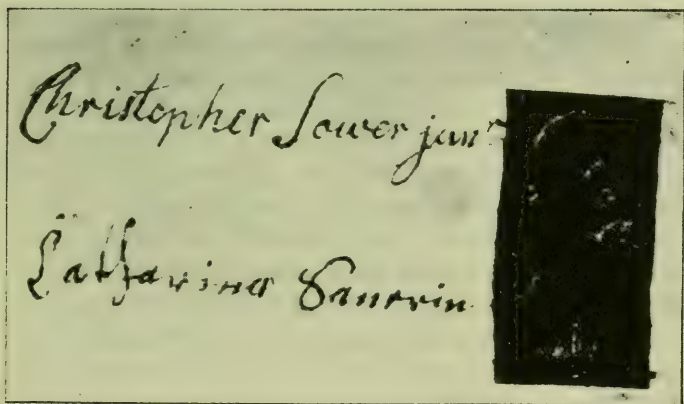 Christopher Sower junr
Catharina Sauerin